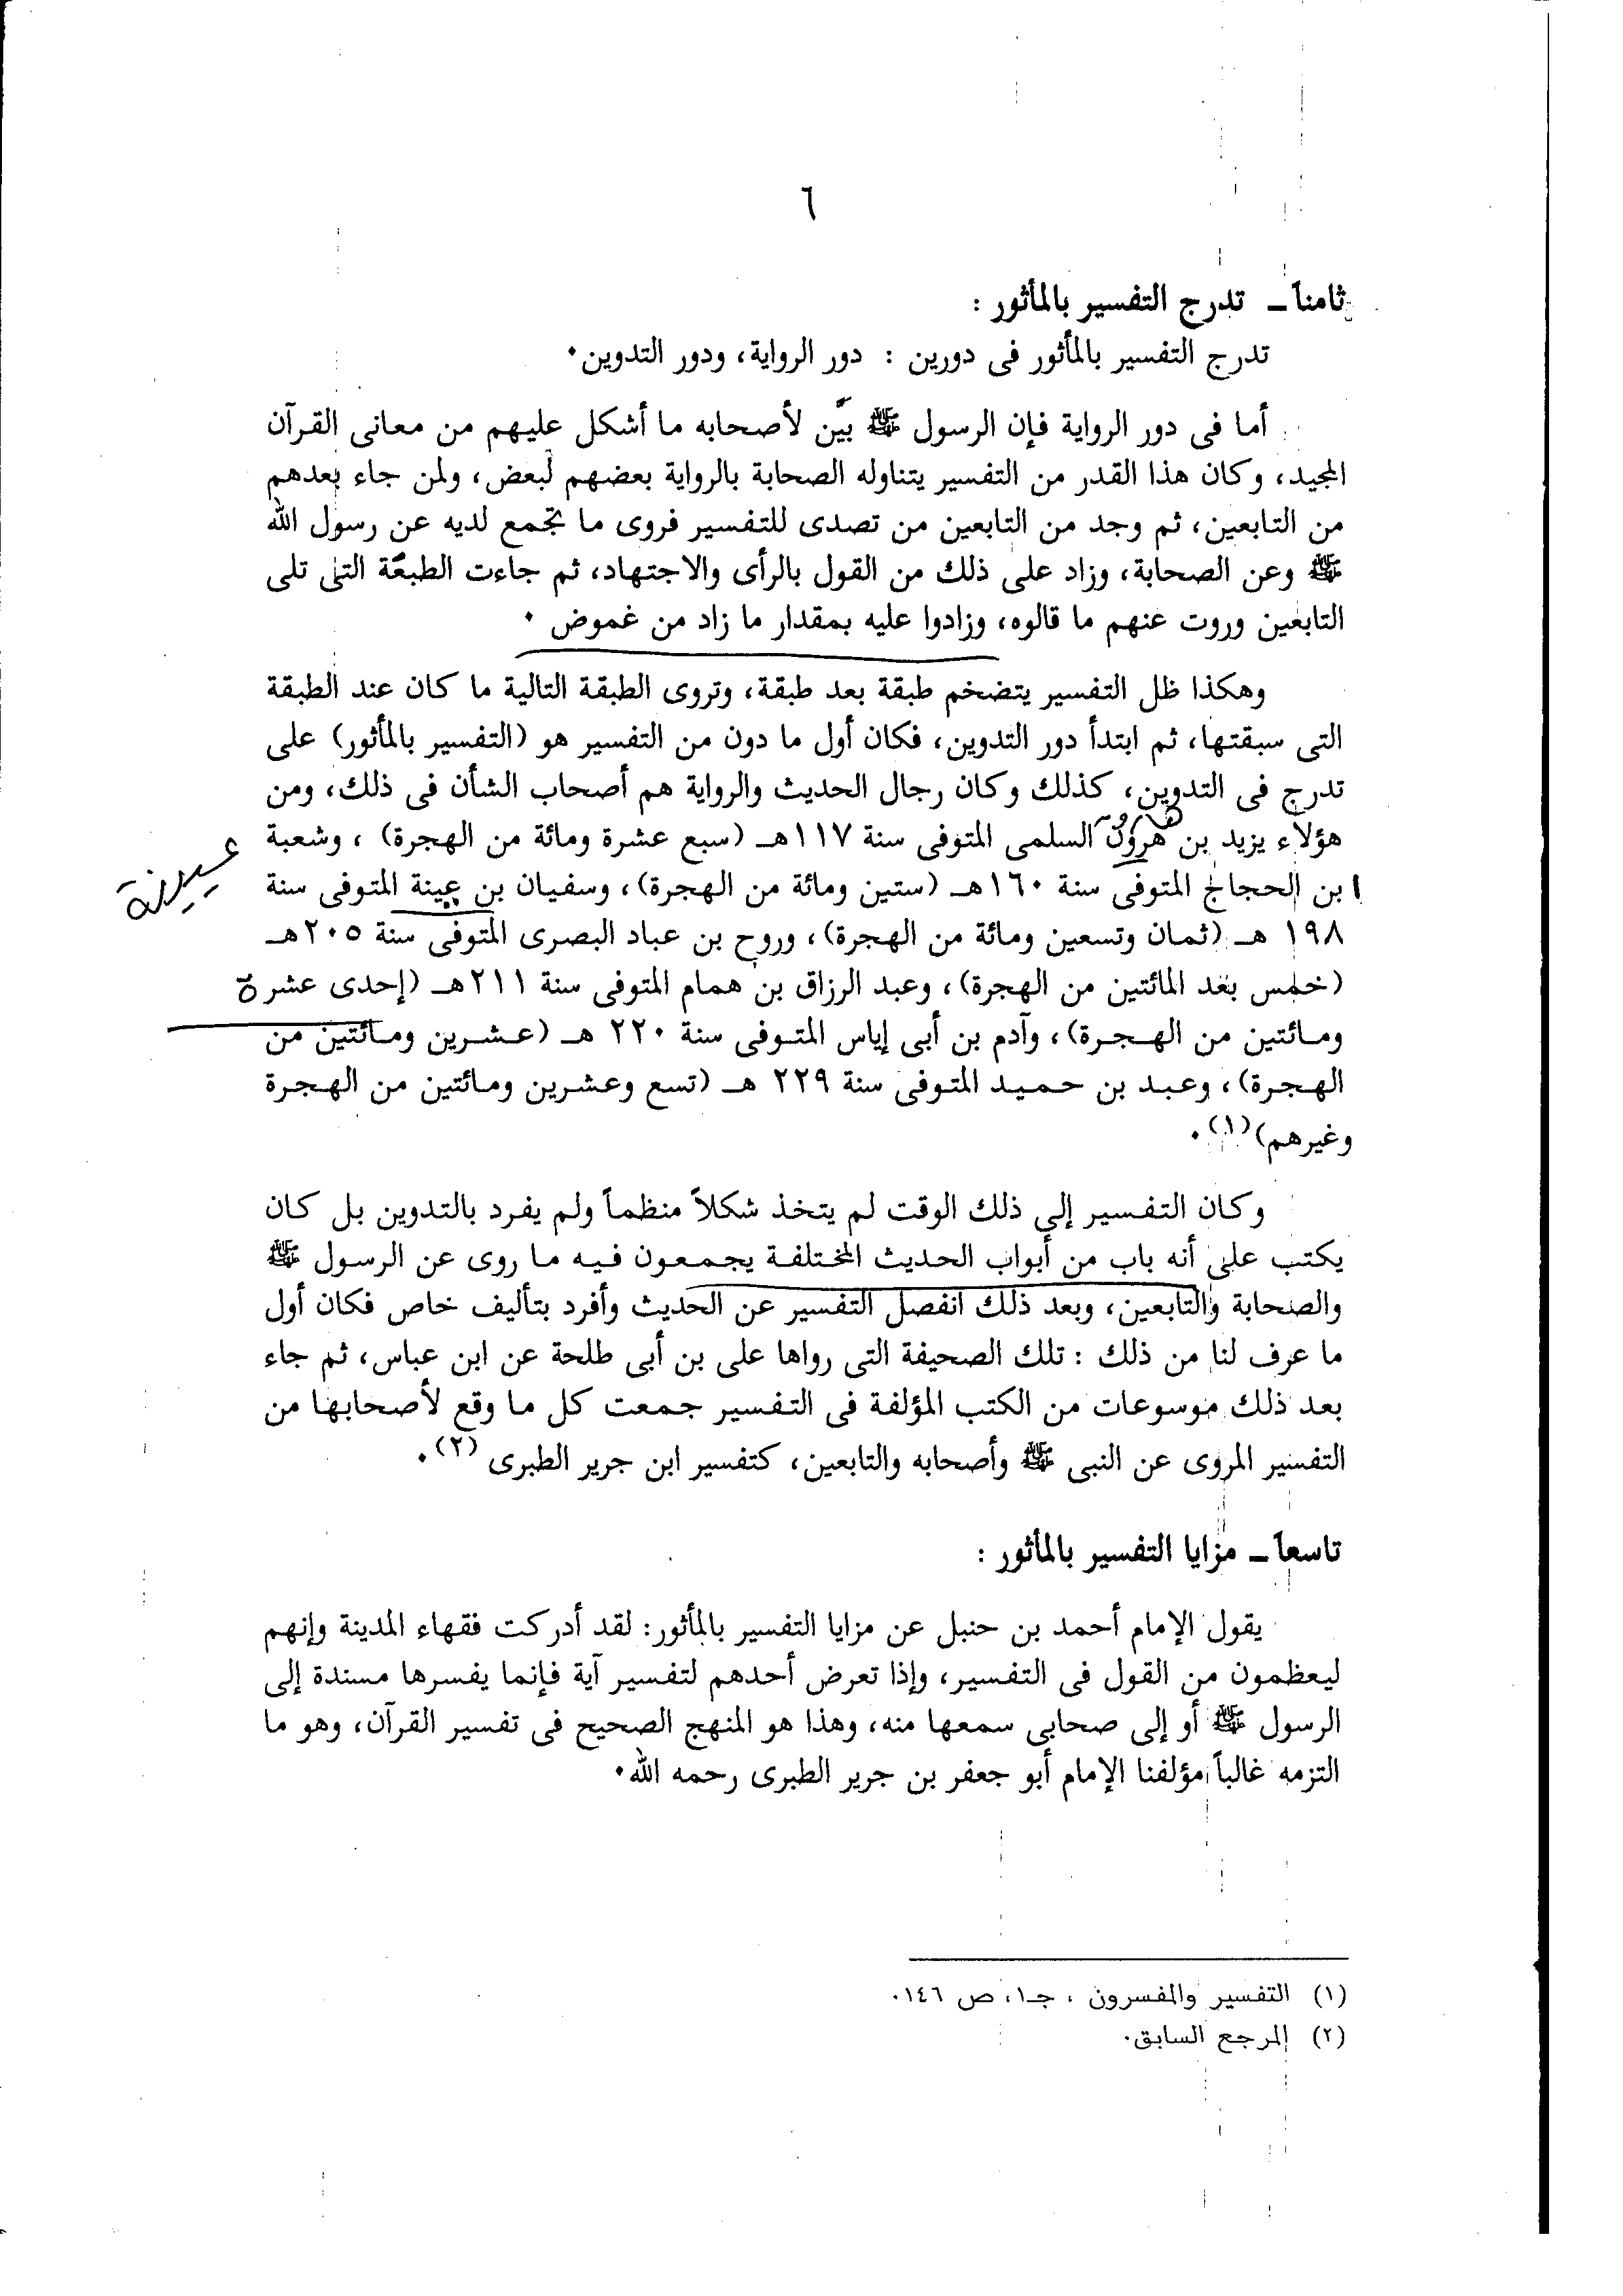 ٦
ثامناً ـ تدرج التفسير بالمأثور :
تدرج التفسير بالمأثور فى دورين : دور الرواية، ودور التدوين.
أما فى دور الرواية فإن الرسول ﷺ بيَّن لأصحابه ما أشكل عليهم من معانى القرآن
المجيد، وكان هذا القدر من التفسير يتناوله الصحابة بالرواية بعضهم لبعض، ولمن جاء بعدهم
من التابعين، ثم وجد من التابعين من تصدى للتفسير فروى ما تجمع لديه عن رسول الله
ﷺ وعن الصحابة، وزاد على ذلك من القول بالرأى والاجتهاد، ثم جاءت الطبقة التى تلى
التابعين وروت عنهم ما قالوه، وزادوا عليه بمقدار ما زاد من غموض .
وهكذا ظل التفسير يتضخم طبقة بعد طبقة، وتروى الطبقة التالية ما كان عند الطبقة
التى سبقتها، ثم ابتدأ دور التدوين، فكان أول ما دون من التفسير هو (التفسير بالمأثور) على
تدرج فى التدوين، كذلك وكان رجال الحديث والرواية هم أصحاب الشأن فى ذلك، ومن
هؤلاء يزيد بن هرون السلمى المتوفى سنة ١١٧هـ (سبع عشرة ومائة من الهجرة) ، وشعبة
ابن الحجاج المتوفى سنة ١٦٠هـ (ستين ومائة من الهجرة)، وسفيان بن عيينة المتوفى سنة
عيينة
١٩٨ هـ (ثمان وتسعين ومائة من الهجرة)، وروح بن عباد البصرى المتوفى سنة ٢٠٥هـ
(خمس بعد المائتين من الهجرة)، وعبد الرزاق بن همام المتوفى سنة ٢١١هـ (إحدى عشرة
ومائتين من الهجرة)، وآدم بن أبى إياس المتوفى سنة ٢٢٠ هـ (عشرين ومائتين من
الهجرة)، وعبد بن حميد المتوفى سنة ٢٢٩ هـ (تسع وعشرين ومائتين من الهجرة
وغيرهم)(١).
وكان التفسير إلى ذلك الوقت لم يتخذ شكلاً منظماً ولم يفرد بالتدوين بل كان
يكتب على أنه باب من أبواب الحديث المختلفة يجمعون فيه ما روى عن الرسول ﷺ
والصحابة والتابعين، وبعد ذلك انفصل التفسير عن الحديث وأفرد بتأليف خاص فكان أول
ما عرف لنا من ذلك : تلك الصحيفة التى رواها على بن أبى طلحة عن ابن عباس، ثم جاء
بعد ذلك موسوعات من الكتب المؤلفة فى التفسير جمعت كل ما وقع لأصحابها من
التفسير المروى عن النبى ﷺ وأصحابه والتابعين، كتفسير ابن جرير الطبرى (٢).
تاسعاً ـ مزايا التفسير بالمأثور :
يقول الإمام أحمد بن حنبل عن مزايا التفسير بالمأثور: لقد أدركت فقهاء المدينة وإنهم
ليعظمون من القول فى التفسير، وإذا تعرض أحدهم لتفسير آية فإنما يفسرها مسندة إلى
الرسول ﷺ أو إلى صحابى سمعها منه، وهذا هو المنهج الصحيح فى تفسير القرآن، وهو ما
التزمه غالباً مؤلفنا الإمام أبو جعفر بن جرير الطبرى رحمه الله.
(١) التفسير والمفسرون ، جـ١، ص ١٤٦.
(٢) المرجع السابق.